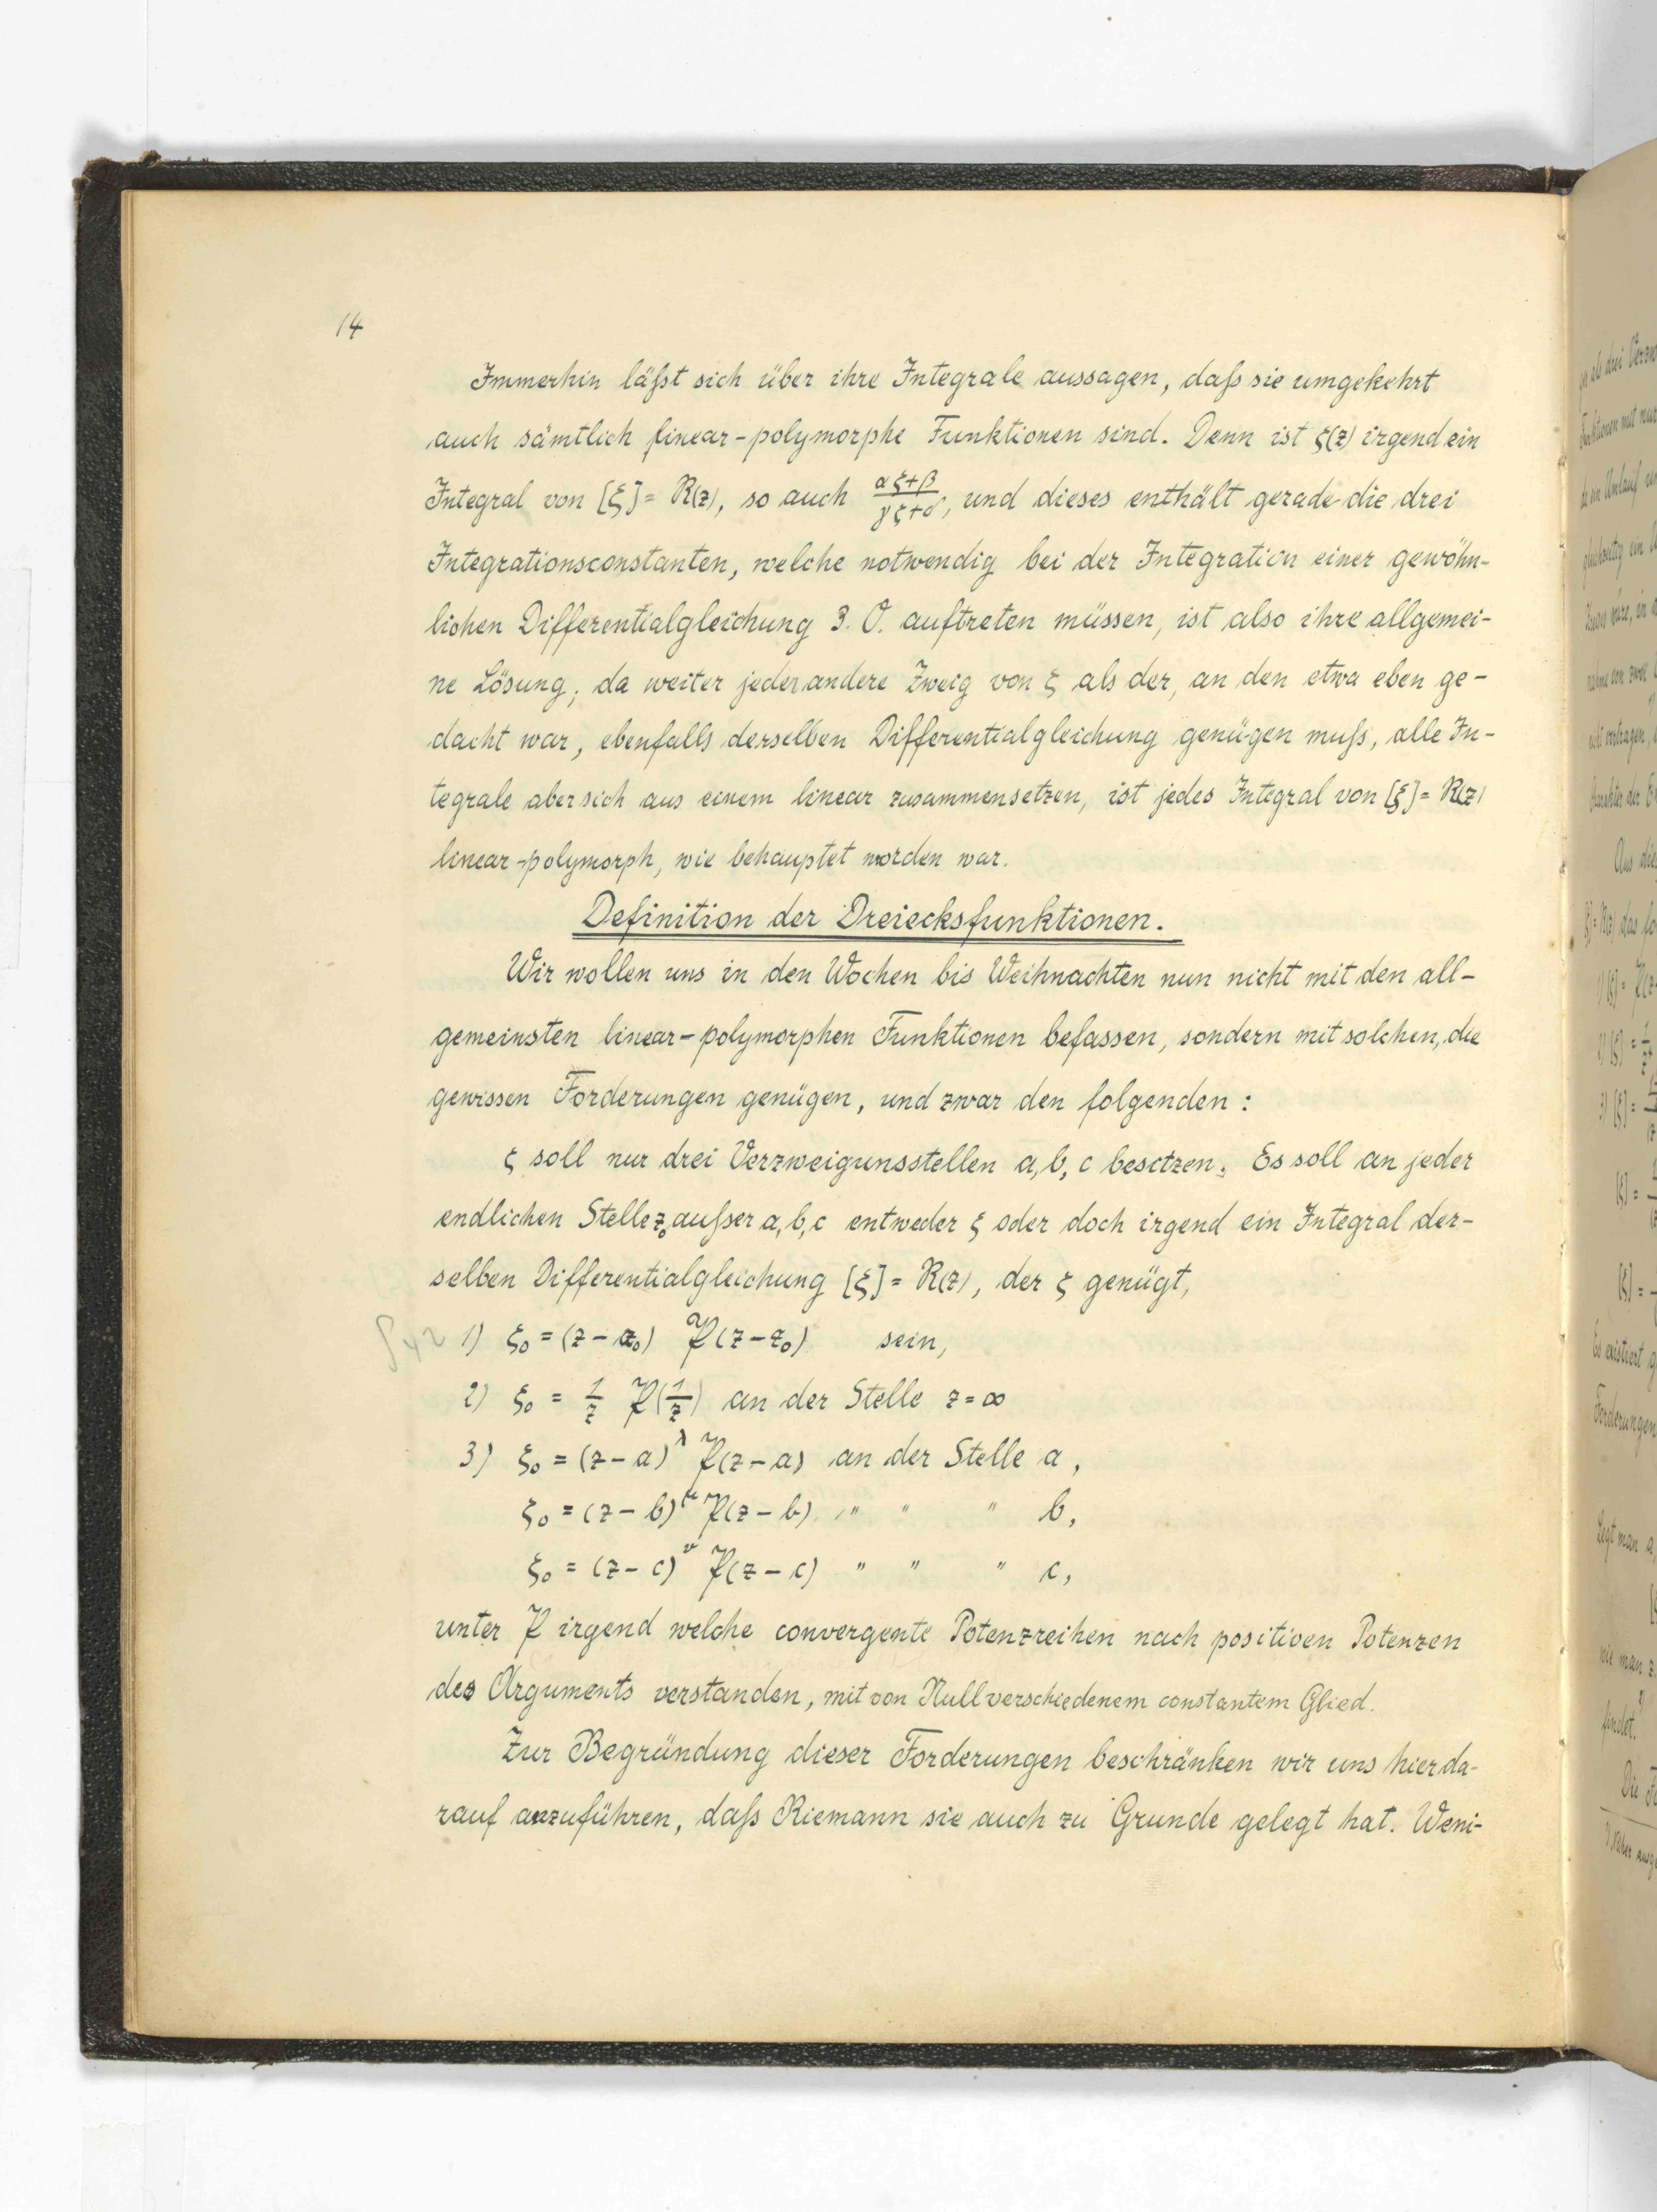 14
Immerhin läßt sich über ihre Integrale aussagen, daß sie umgekehrt
auch sämtlich linear-polymorphe Funktionen sind. Denn ist ζ(z) irgend ein
Integral von [ξ] = R(z), so auch (αζ+β)/(γζ+δ), und dieses enthält gerade die drei
Integrationsconstanten, welche notwendig bei der Integration einer gewöhn-
lichen Differentialgleichung 3. O. auftreten müssen, ist also ihre allgemei-
ne Lösung; da weiter jeder andere Zweig von ζ als der, an den etwa eben ge-
dacht war, ebenfalls derselben Differentialgleichung genügen muß, alle In-
tegrale aber sich aus einem linear zusammensetzen, ist jedes Integral von [ξ] = R(z)
linear-polymorph, wie behauptet worden war.
Definition der Dreiecksfunktionen.
Wir wollen uns in den Wochen bis Weihnachten nun nicht mit den all-
gemeinsten linear-polymorphen Funktionen befassen, sondern mit solchen, die
gewissen Forderungen genügen, und zwar den folgenden:
ζ soll nur drei Verzweigunsstellen a, b, c besitzen. Es soll an jeder
endlichen Stelle z₀ außer a, b, c entweder ζ oder doch irgend ein Integral der-
selben Differentialgleichung [ξ] = R(z), der ζ genügt,
1) ζ₀ = (z - z₀) 𝔓(z - z₀) sein,
2) ζ₀ = 1/z 𝔓(1/z) an der Stelle z = ∞
3) ζ₀ = (z - a)^λ 𝔓(z - a) an der Stelle a,
ζ₀ = (z - b)^μ 𝔓(z - b) " " " b,
ζ₀ = (z - c)^ν 𝔓(z - c) " " " c,
unter 𝔓 irgend welche convergente Potenzreihen nach positiven Potenzen
des Arguments verstanden, mit von Null verschiedenem constantem Glied.
Zur Begründung dieser Forderungen beschränken wir uns hier da-
rauf anzuführen, daß Riemann sie auch zu Grunde gelegt hat. Weni-